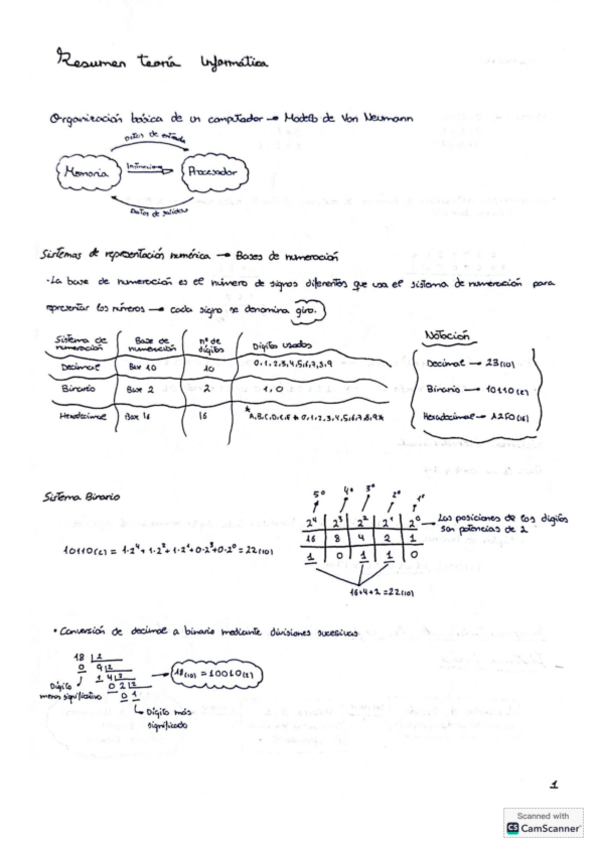 Resumen teoría Informática
Organización básica de un computador → Modelo de Von Neumann
Datos de entrada
Memoria
Instrucciones
Procesador
Datos de salida
Sistemas de representación numérica → Bases de numeración
-La base de numeración es el número de signos diferentes que usa el sistema de numeración para
representar los números → cada signo se denomina
Sistema de numeración | Base de numeración | nº de dígitos | Dígitos usados
Decimal | Base 10 | 10 | 0,1,2,3,4,5,6,7,8,9
Binario | Base 2 | 2 | 1,0
Hexadecimal | Base 16 | 16 | *A,B,C,D,E,F + 0,1,2,3,4,5,6,7,8,9*
Notación
Decimal → 23(10)
Binario → 10110(2)
Hexadecimal → A2F0(16)
Sistema Binario
5º 4º 3º 2º 1º
2⁴ 2³ 2² 2¹ 2⁰ → Las posiciones de los dígitos
son potencias de 2
16 8 4 2 1
1 0 1 1 0
16+4+2=22(10)
10110(2) = 1·2⁴+1·2²+1·2¹+0·2³+0·2⁰=22(10)
• Conversión de decimal a binario mediante divisiones sucesivas
18 2
0 9 2
1 4 2
0 2 2
0 1
18(10) = 10010(2)
Dígito
menos significativo
Dígito más
significado
1
Scanned with
CS CamScanner